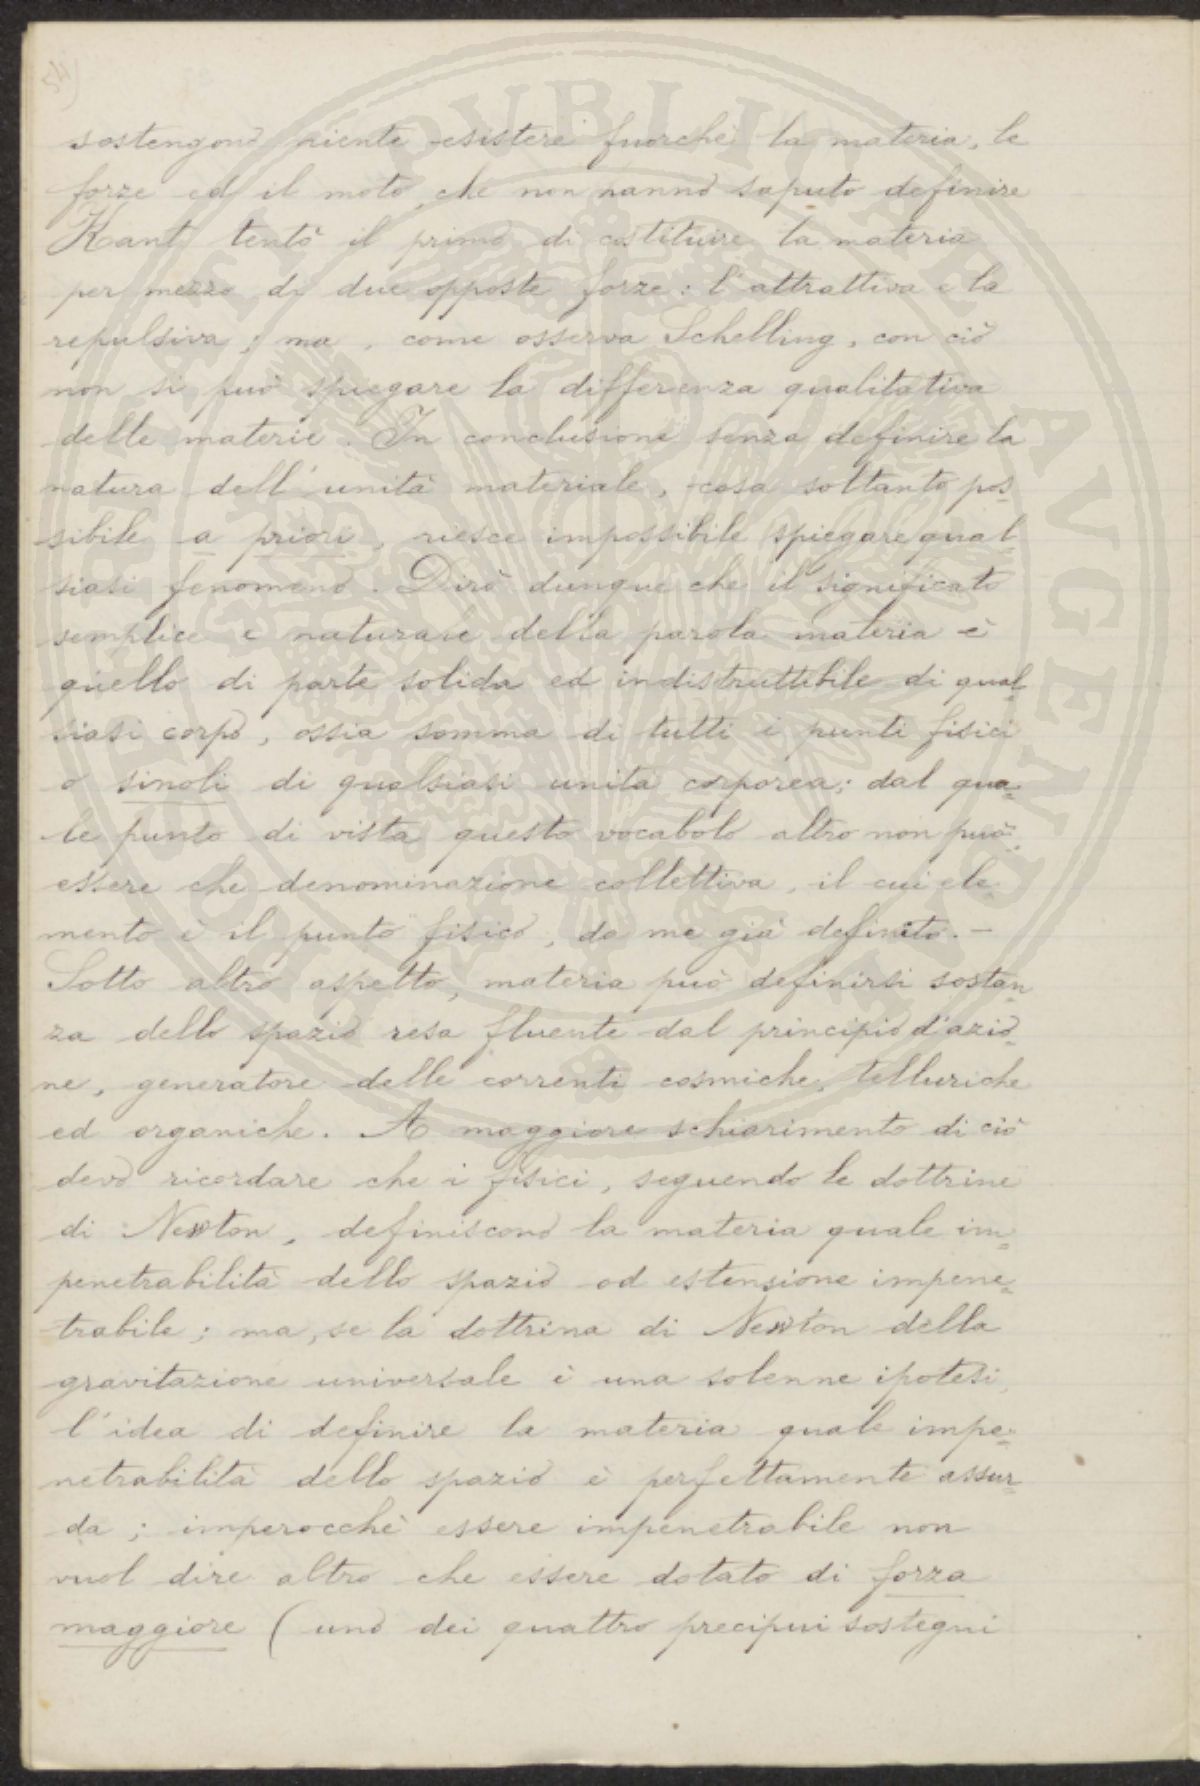 sostengono niente esistere fuorchè la materia, le
forze ed il moto, che non nanno saputo definire
Kant tentò il primo di costituire la materia
per mezzo di due opposte forze: l'attrattiva e la
repulsiva; ma, come osserva Schelling, con ciò
non si può spiegare la differenza qualitativa
delle materie. In conclusione senza definire la
natura dell'unità materiale, cosa soltanto pos=
sibile a priori, riesce impossibile spiegare qual=
siasi fenomeno. Dirò dunque che il significato
semplice e naturale della parola materia è
quello di parte solida ed indistruttibile di qual=
siasi corpo, ossia somma di tutti i punti fisici
o sinoli di qualsiasi unità corporea; dal qua=
le punto di vista questo vocabolo altro non può
essere che denominazione collettiva, il cui ele=
mento è il punto fisico, da me già definito. —
Sotto altro aspetto, materia può definirsi sostan=
za dello spazio resa fluente dal principio d'azio=
ne, generatore delle correnti cosmiche, telluriche
ed organiche. A maggiore schiarimento di ciò
devo ricordare che i fisici, seguendo le dottrine
di Newton, definiscono la materia quale im=
penetrabilità dello spazio od estensione impene=
trabile; ma, se la dottrina di Newton della
gravitazione universale è una solenne ipotesi,
l'idea di definire la materia quale impe=
netrabilità dello spazio è perfettamente assur=
da; imperocchè essere impenetrabile non
vuol dire altro che essere dotato di forza
maggiore (uno dei quattro precipui sostegni
PVBLICAE
AVGENDO